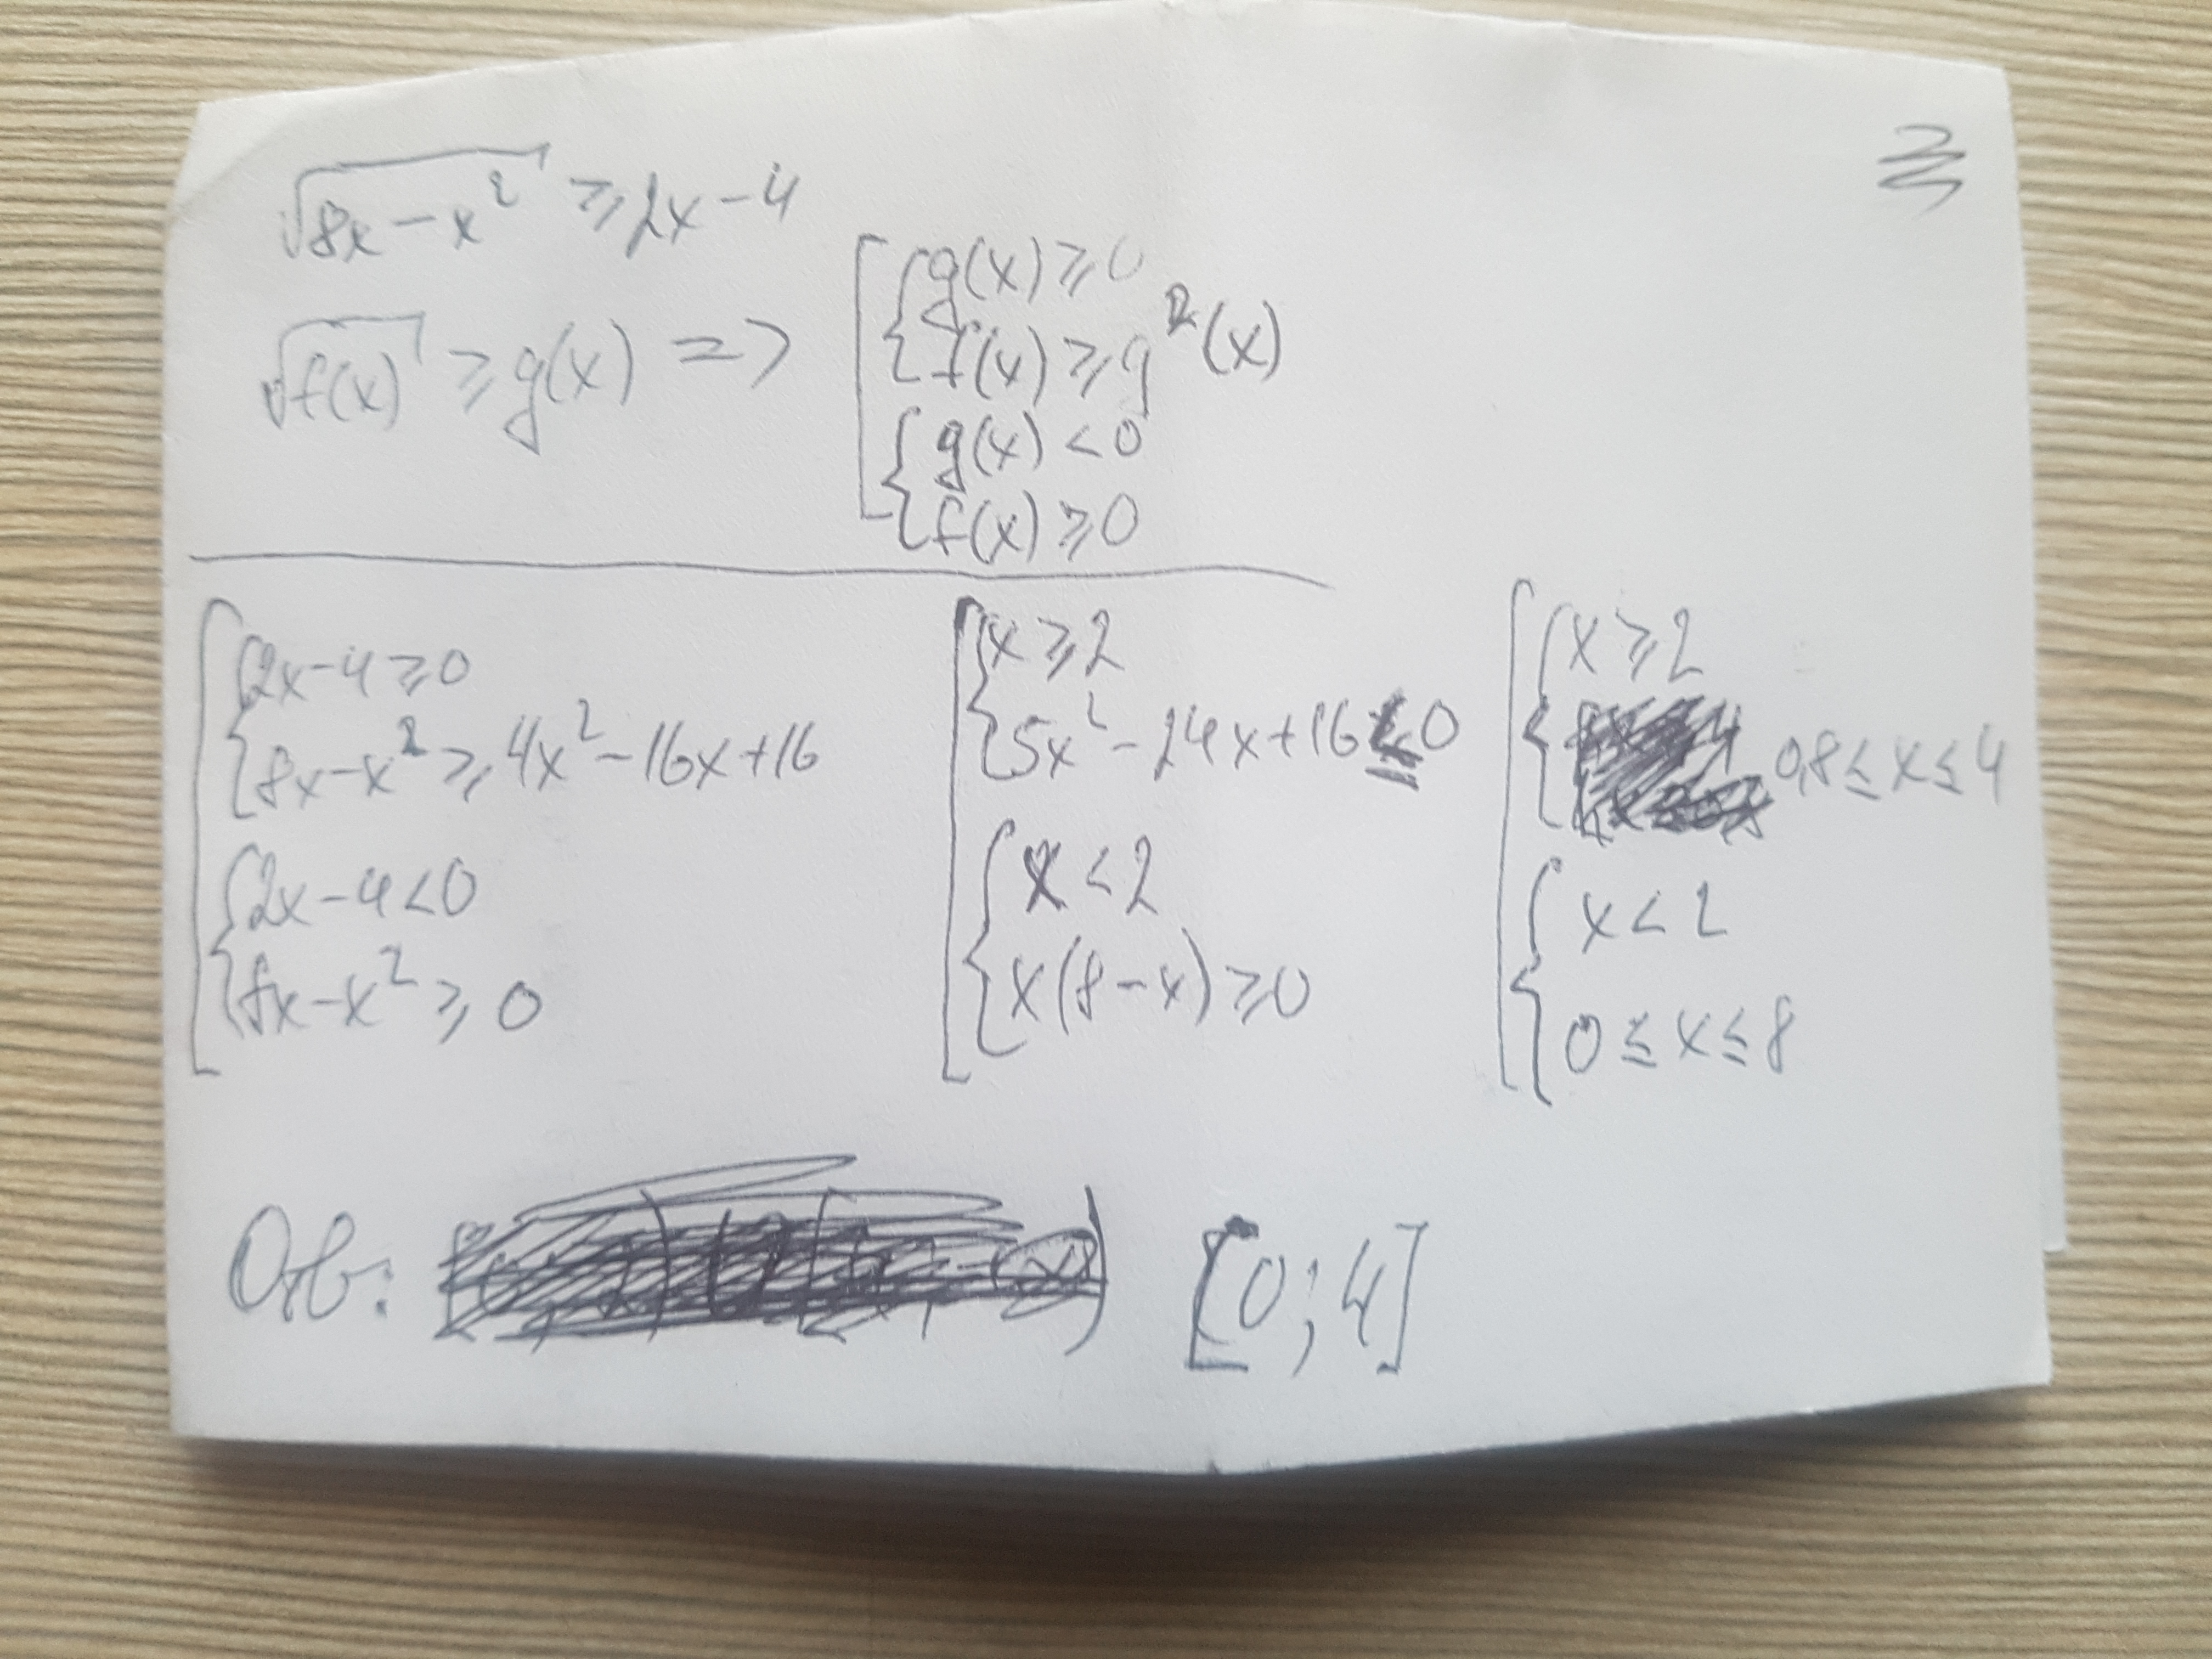 √(8x-x²) ≥ 2x-4
√f(x) ≥ g(x) => [ { g(x) ≥ 0
f(x) ≥ g²(x)
{ g(x) < 0
f(x) ≥ 0
[ { 2x-4 ≥ 0
8x-x² ≥ 4x²-16x+16
{ 2x-4 < 0
8x-x² ≥ 0
[ { x ≥ 2
5x²-24x+16 ≤ 0
{ x < 2
x(8-x) ≥ 0
[ { x ≥ 2
0,8 ≤ x ≤ 4
{ x < 2
0 ≤ x ≤ 8
Отв: [0; 4]